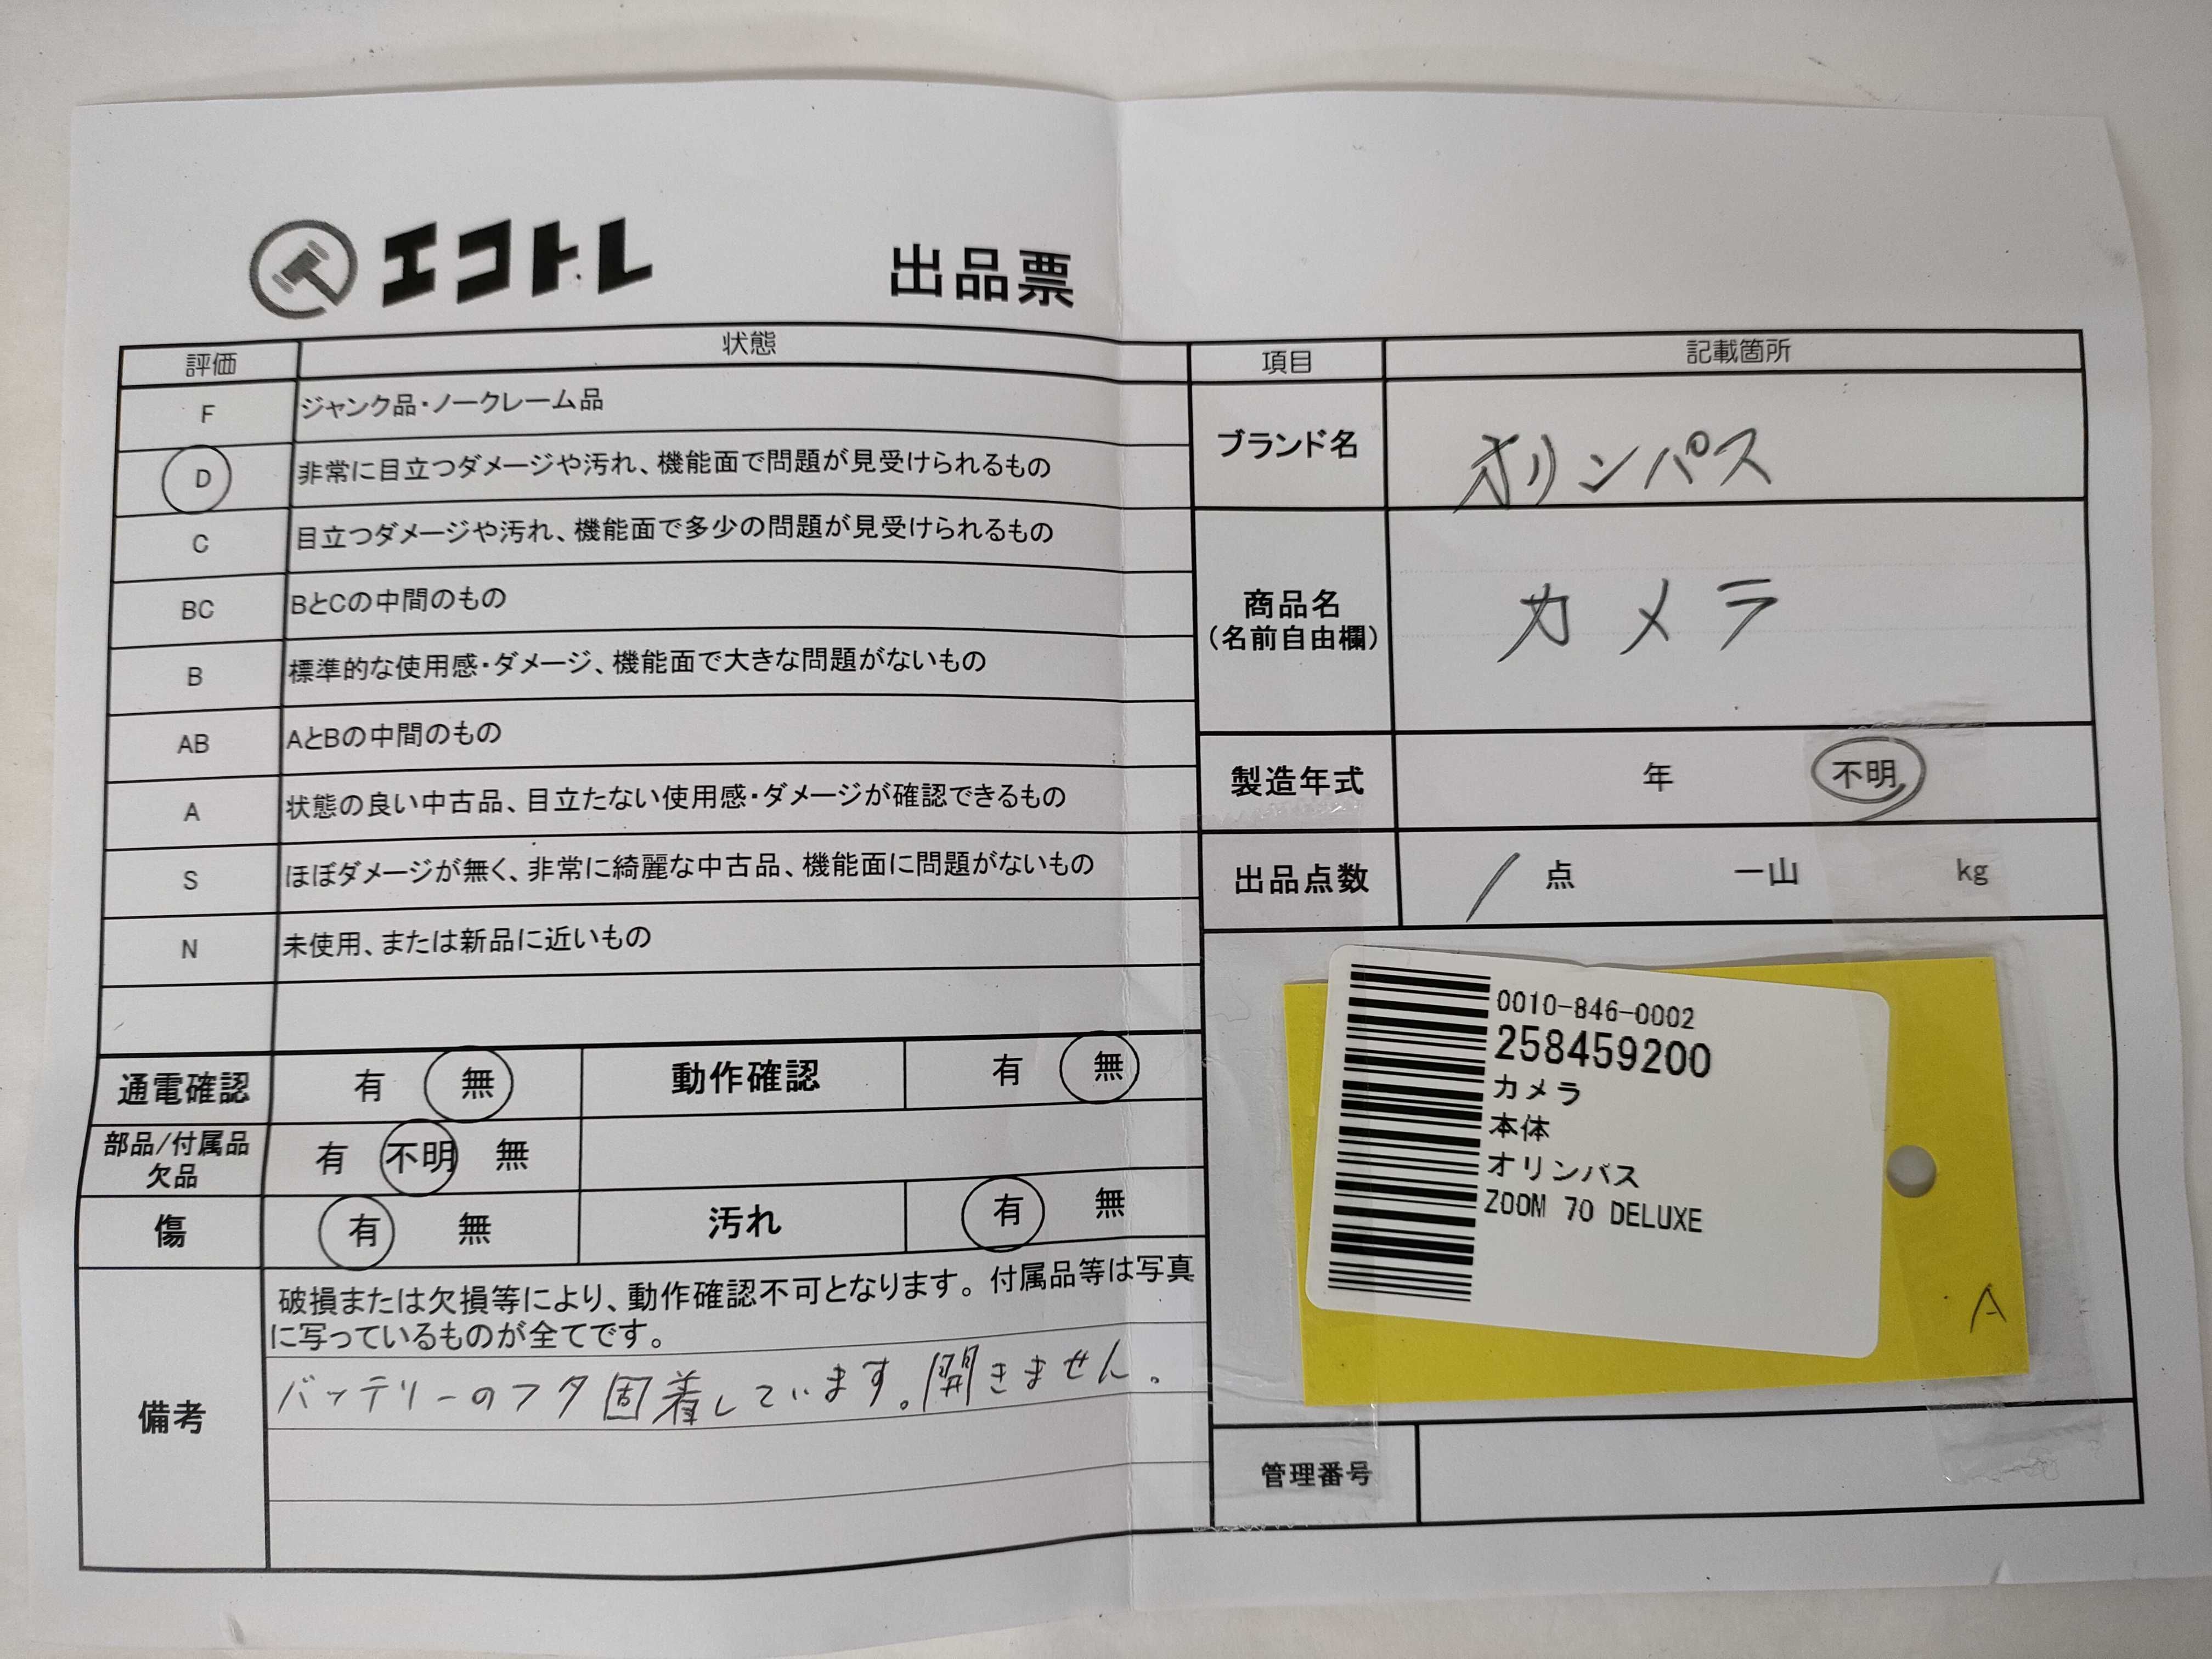 エコトレ
出品票
評価 状態
F ジャンク品・ノークレーム品
D 非常に目立つダメージや汚れ、機能面で問題が見受けられるもの
C 目立つダメージや汚れ、機能面で多少の問題が見受けられるもの
BC BとCの中間のもの
B 標準的な使用感・ダメージ、機能面で大きな問題がないもの
AB AとBの中間のもの
A 状態の良い中古品、目立たない使用感・ダメージが確認できるもの
S ほぼダメージが無く、非常に綺麗な中古品、機能面に問題がないもの
N 未使用、または新品に近いもの
通電確認 有 無 動作確認 有 無
部品/付属品
欠品 有 不明 無
傷 有 無 汚れ 有 無
備考
破損または欠損等により、動作確認不可となります。付属品等は写真
に写っているものが全てです。
バッテリーのフタ固着しています。開きません。
項目 記載箇所
ブランド名 オリンパス
商品名
(名前自由欄) カメラ
製造年式 年 不明
出品点数 1 点 一山 kg
0010-846-0002
258459200
カメラ
本体
オリンパス
ZOOM 70 DELUXE
A
管理番号